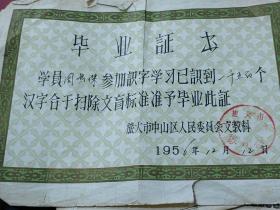 毕业証书
学員周 参加識字学习已識到一千五百个
汉字合于扫除文盲标准准予毕业此証
旅大市中山区人民委員会文教科
1956年12月12日